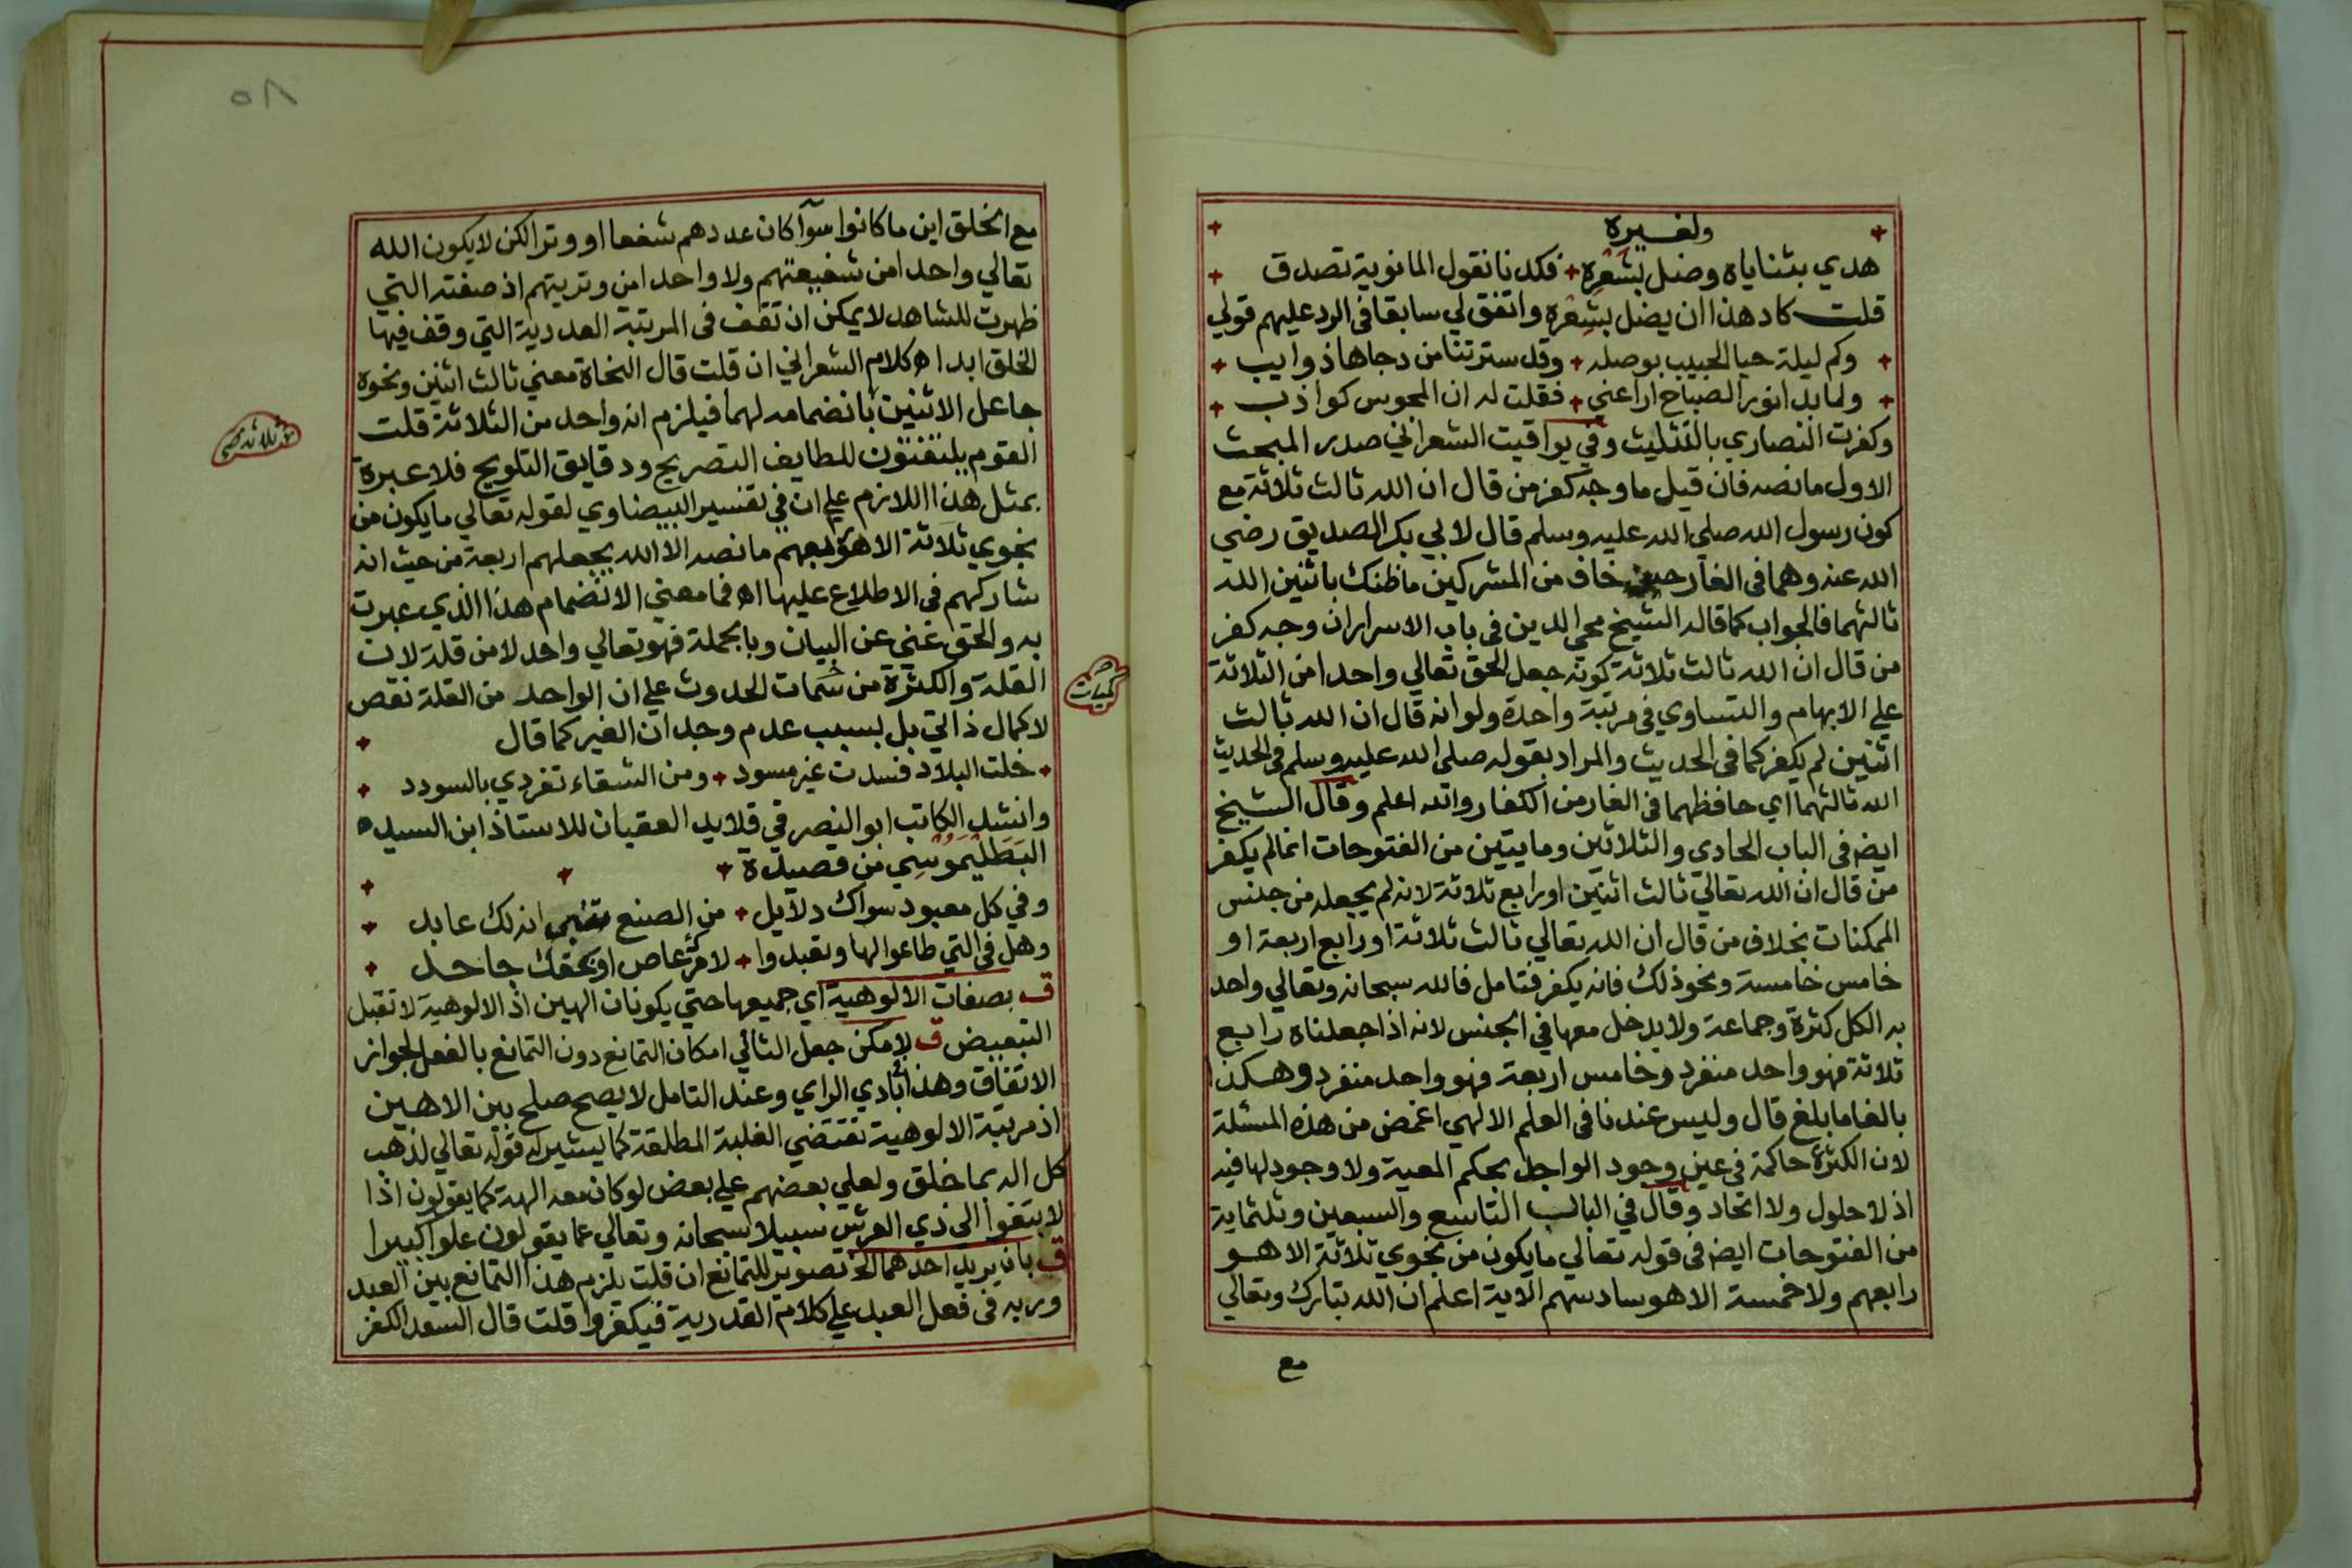 ولغيره
هدي بثناياه وضل بشعره فكدنا نقول المانوية تصدق
قلت كاد هذا ان يضل بشعره واتفق لي سابقا في الرد عليهم قولي
وكم ليلة حيا الحبيب بوصله وقد سترتنا من دجاها ذوايب
ولما بدا نور الصباح اراعني فقلت له ان المجوس كواذب
وكفرت النصاري بالتثليث وفي يواقيت الشعراني صدر المبحث
الاول ما نصه فان قيل ما وجه كفر من قال ان الله ثالث ثلاثة مع
كون رسول الله صلي الله عليه وسلم قال لابي بكر الصديق رضي
الله عنه وهما في الغار حين خاف من المشركين ما ظنك باثنين الله
ثالثهما فالجواب كما قاله الشيخ محي الدين في باب الاسرار ان وجه كفر
من قال ان الله ثالث ثلاثة كونه جعل الحق تعالي واحدا من الثلاثة
علي الابهام والتساوي في مرتبة واحدة ولو انه قال ان الله ثالث
اثنين لم يكفر كما في الحديث والمراد بقوله صلي الله عليه وسلم في الحديث
الله ثالثهما اي حافظهما في الغار من الكفار والله اعلم وقال الشيخ
ايضه في الباب الحادي والثلاثين ومايتين من الفتوحات انما لم يكفر
من قال ان الله تعالي ثالث اثنين او رابع ثلاثة لانه لم يجعله من جنس
الممكنات بخلاف من قال ان الله تعالي ثالث ثلاثة او رابع اربعة او
خامس خامسة ونحو ذلك فانه يكفر فتامل فالله سبحانه وتعالي واحد
به الكل كثرة وجماعة ولا يدخل معها في الجنس لانه اذا جعلناه رابع
ثلاثة فهو واحد منفرد وخامس اربعة فهو واحد منفرد وهكذا
بالغا ما بلغ قال وليس عندنا في العلم الالهي اغمض من هذه المسئلة
لان الكثرة حاكمة في عين وجود الواحد بحكم المعية ولا وجود لها فيه
اذ لا حلول ولا اتحاد وقال في الباب التاسع والسبعين وثلثماية
من الفتوحات ايضه في قوله تعالي ما يكون من نجوي ثلاثة الا هو
رابعهم ولا خمسة الا هو سادسهم الاية اعلم ان الله تبارك وتعالي
مع
٥٨
مع الخلق اين ما كانوا سوآ كان عددهم شفعا او وترا لكن لا يكون الله
تعالي واحدا من شفيعتهم ولا واحدا من وتريتهم اذ صفته التي
ظهرت للشاهد لا يمكن ان تقف في المرتبة العددية التي وقف فيها
الخلق ابدا اه كلام الشعراني ان قلت قال النحاة معني ثالث اثنين ونحوه
جاعل الاثنين بانضمامه لهما فيلزم انه واحد من الثلاثة قلت
القوم يلتفتون للطايف التصريح ودقايق التلويح فلا عبرة
بمثل هذا اللازم علي ان في تفسير البيضاوي لقوله تعالي ما يكون من
نجوي ثلاثة الا هو رابعهم ما نصه الا الله يجعلهم اربعة من حيث انه
شاركهم في الاطلاع عليها اه فما معني الانضمام هذا الذي عبرت
به والحق غني عن البيان وبالجملة فهو تعالي واحد لا من قلة لان
القلة والكثرة من سمات الحدوث علي ان الواحد من القلة نقص
كميات صح
لا كمال ذاتي بل بسبب عدم وجدان الغير كما قال
خلت البلاد فسدت غير مسود ومن الشقاء تفردي بالسودد
وانشد الكاتب ابو النصر في قلايد العقيان للاستاذ ابن السيد
البطليموسي من قصيدة
وفي كل معبود سواك دلايل من الصنع تنبي انه لك عابد
وهل في التي طاعوا لها وتعبدوا لامرك عاص او بحقك جاحد
ق بصفات الالوهية اي جميعها حتي يكونان الهين اذ الالوهية لا تقبل
التبعيض ق لامكن جعل التالي امكان التمانع دون التمانع بالفعل لجواز
الاتفاق وهذا بادي الراي وعند التامل لا يصح صلح بين الاهين
اذ مرتبة الالوهية تقتضي الغلبة المطلقة كما يشير له قوله تعالي لذهب
كل اله بما خلق ولعلي بعضهم علي بعض لو كان معه الهة كما يقولون اذا
لابتغوا الي ذي العرش سبيلا سبحانه وتعالي عما يقولون علوا كبيرا
ق بان يريد احدهما الخ تصوير للتمانع ان قلت يلزم هذا التمانع بين العبد
وربه في فعل العبد علي كلام القدرية فيكفروا قلت قال السعد الكفر